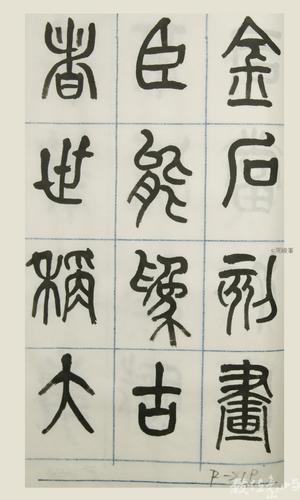 金石刻畫
臣能爲古
者世稱大